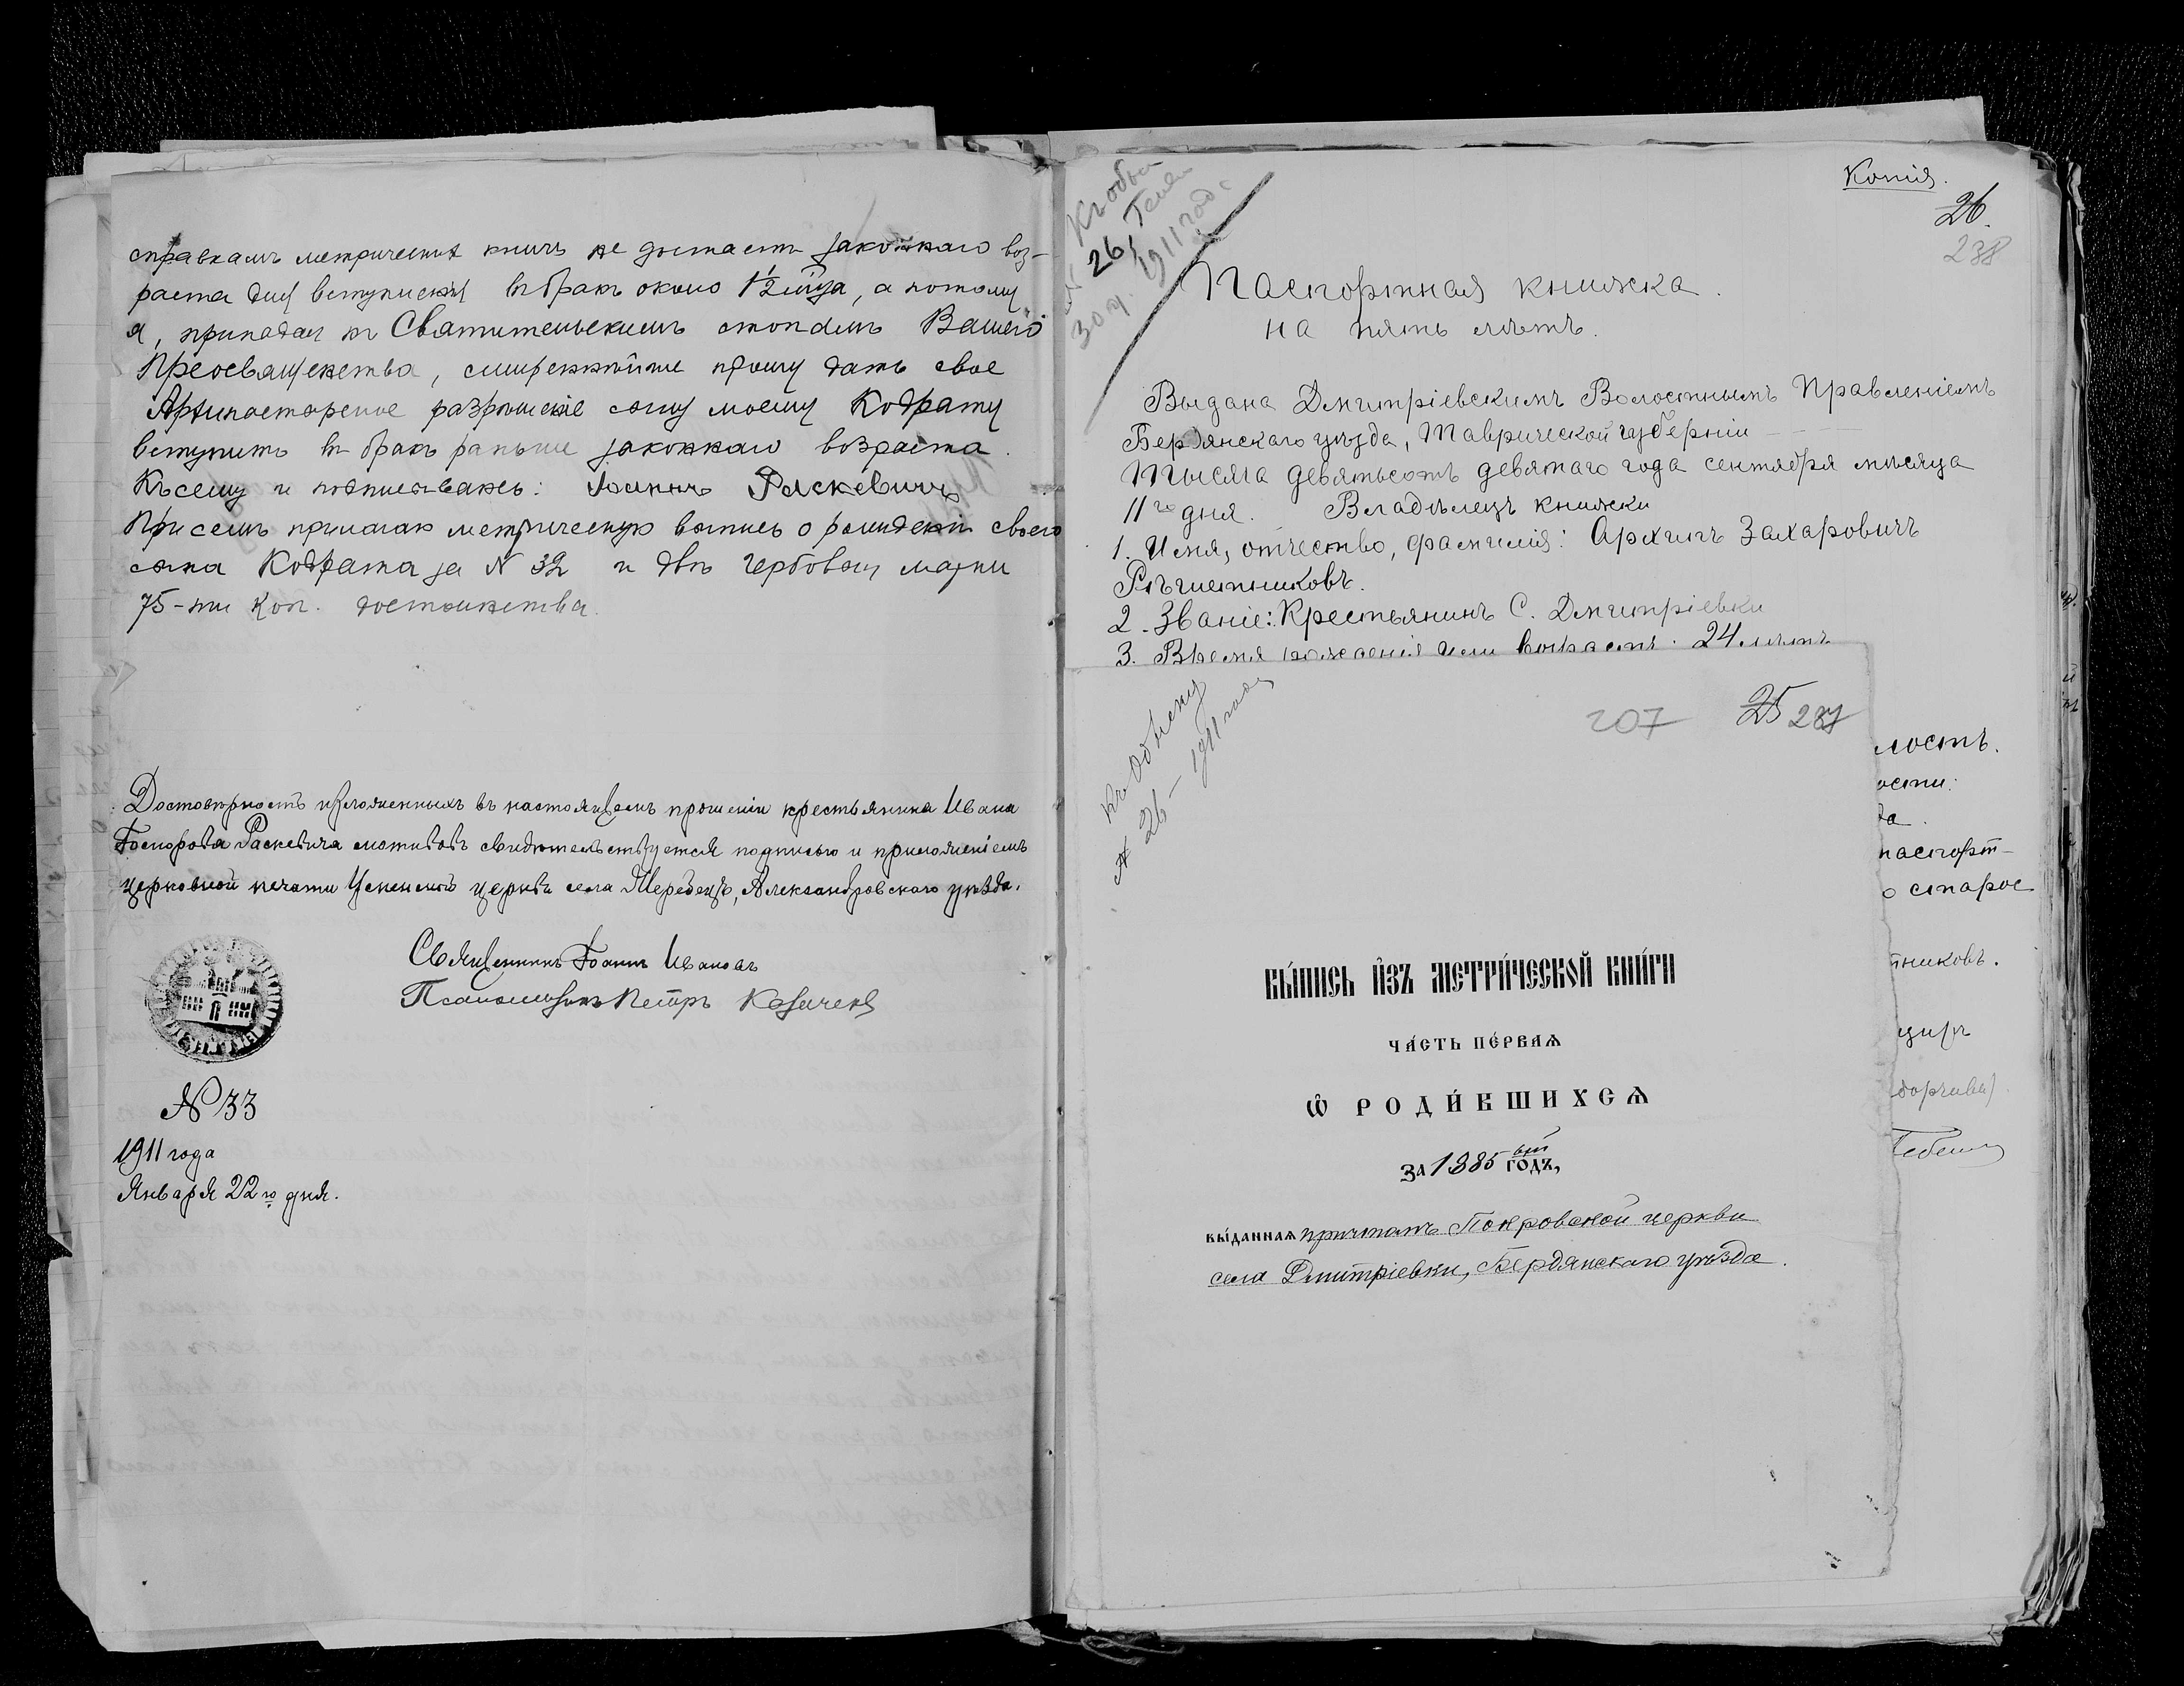 справкамъ метрическихъ книгъ не достаетъ законнаго воз-
раста для вступленія въ бракъ около 1½ м-ца, а потому
я, припадая къ Святительскимъ стопамъ Вашего
Преосвященства, смиреннѣйше прошу дать свое
Архипастырское разрѣшеніе сыну моему Кодрату
вступить въ бракъ раньше законнаго возраста.
Къ сему и подписываюсь: Іоаннъ Раскевичъ
При семъ прилагаю метрическую выпись о рожденіи своего
сына Кодрата за № 32 и двѣ гербовыя марки
75-ти коп. достоинства.
Достовѣрность изложенныхъ въ настоящемъ прошеніи крестьянина Ивана
Раскевича мотивовъ свидѣтельствуется подписью и приложеніемъ
церковной печати Успенской церкви села Александровскаго уѣзда.
Священникъ Іоаннъ Ивановъ
Псаломщикъ Петръ
№ 33
1911 года
Января 22го дня.
Копія.
26.
238
26, 1911 года
Паспортная книжка.
на пять лѣтъ.
Выдана Дмитріевскимъ Волостнымъ Правленіемъ
Бердянскаго уѣзда, Таврической губерніи
Тысяча девятьсотъ девятаго года сентября мѣсяца
11го дня. Владѣлецъ книжки
1. Имя, отчество, фамилія: Архипъ Захаровичъ
Рѣшетниковъ.
2. Званіе: Крестьянинъ С. Дмитріевки
3. Время рожденія или возрастъ: 24 лѣтъ
№ 26 – 1911 года
207 25 237
лость.
ости:
да.
паспорт-
о старое
тниковъ.
ВЫ́ПИСЬ И҆ЗЪ МЕТРИ́ЧЕСКОЙ КНИ́ГИ
ЧА́СТЬ ПЕ́РВАѦ
Ѡ҆ РОДИ́ВШИХСѦ
ЗА 1885ый ГО́ДЪ,
ВЫ́ДАННАѦ причтомъ Покровской церкви
села Дмитріевки, Бердянскаго уѣзда.